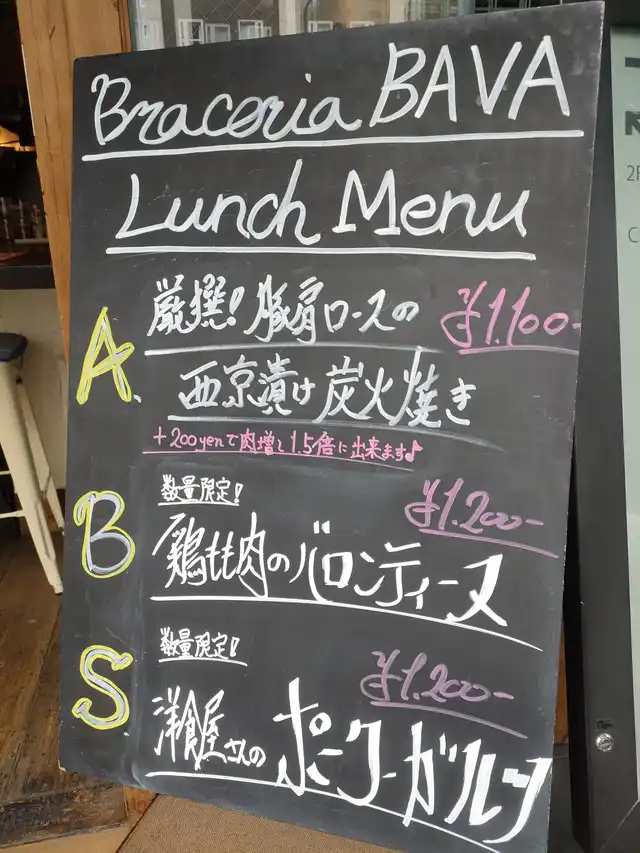 Braceria BAVA
Lunch Menu
A.
厳撰!豚肩ロースの
¥1.100-
西京漬け炭火焼き
+200yenで肉増し1.5倍に出来ます♪
B
数量限定!
¥1.200-
鶏もも肉のバロンティーヌ
S.
数量限定!
¥1.200-
洋食屋さんの ポークガルツ
2F
C